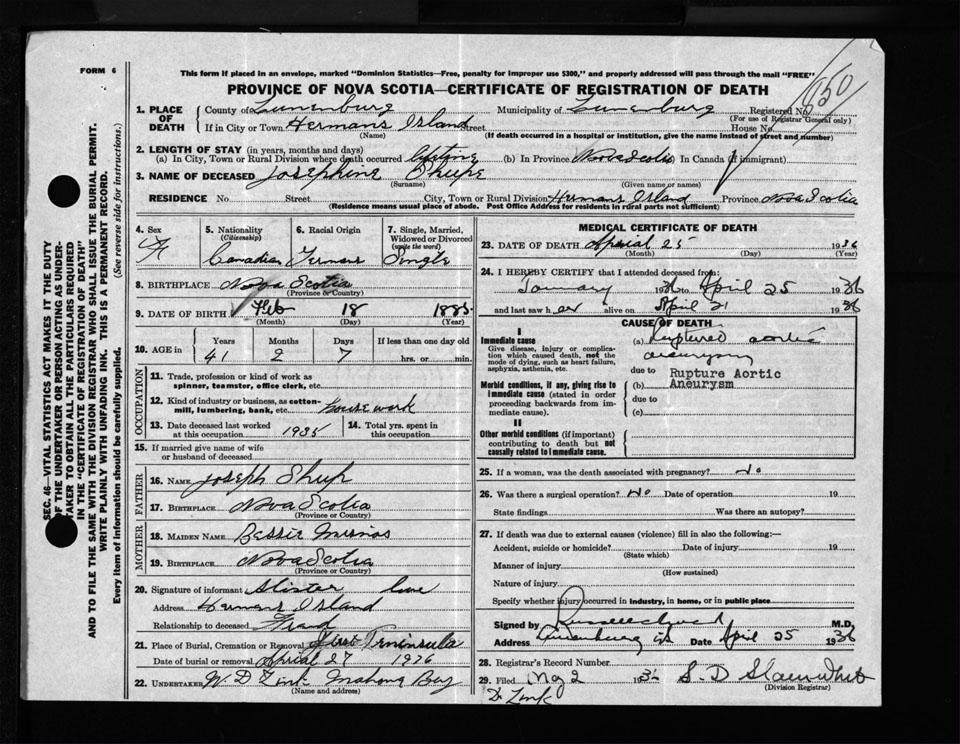 FORM 6
This form if placed in an envelope, marked "Dominion Statistics—Free, penalty for improper use $300," and properly addressed will pass through the mail "FREE"
PROVINCE OF NOVA SCOTIA—CERTIFICATE OF REGISTRATION OF DEATH
SEC. 46—VITAL STATISTICS ACT MAKES IT THE DUTY
OF THE UNDERTAKER OR PERSON ACTING AS UNDER-
TAKER TO OBTAIN ALL THE PARTICULARS REQUIRED
IN THE "CERTIFICATE OF REGISTRATION OF DEATH"
AND TO FILE THE SAME WITH THE DIVISION REGISTRAR WHO SHALL ISSUE THE BURIAL PERMIT.
WRITE PLAINLY WITH UNFADING INK. THIS IS A PERMANENT RECORD.
Every item of information should be carefully supplied. (See reverse side for instructions.)
1. PLACE OF DEATH County of Lunenburg Municipality of Lunenburg Registered No. 850
(For use of Registrar General only)
If in City or Town Hermans Island Street House No.
(Name) (If death occurred in a hospital or institution, give the name instead of street and number)
2. LENGTH OF STAY (in years, months and days)
(a) In City, Town or Rural Division where death occurred lifetime (b) In Province Nova Scotia In Canada (if immigrant)
3. NAME OF DECEASED Josephine Shupe
(Surname) (Given name or names)
RESIDENCE No. Street City, Town or Rural Division Hermans Island Province Nova Scotia
(Residence means usual place of abode. Post Office Address for residents in rural parts not sufficient)
4. Sex F
5. Nationality (Citizenship) Canadian
6. Racial Origin German
7. Single, Married, Widowed or Divorced (write the word) Single
8. BIRTHPLACE Nova Scotia
(Province or Country)
9. DATE OF BIRTH Feb 18 1885
(Month) (Day) (Year)
10. AGE in Years Months Days If less than one day old
41 2 7 hrs. or min.
OCCUPATION
11. Trade, profession or kind of work as spinner, teamster, office clerk, etc.
12. Kind of industry or business, as cotton-mill, lumbering, bank, etc. House work
13. Date deceased last worked at this occupation 1935
14. Total yrs. spent in this occupation
15. If married give name of wife or husband of deceased
FATHER
16. NAME Joseph Shup
17. BIRTHPLACE Nova Scotia
(Province or Country)
MOTHER
18. MAIDEN NAME Bessie
19. BIRTHPLACE Nova Scotia
(Province or Country)
20. Signature of informant
Address Hermans Island
Relationship to deceased
21. Place of Burial, Cremation or Removal First Peninsula
Date of burial or removal April 27 1936
22. UNDERTAKER W. D Zink Mahone Bay
(Name and address)
MEDICAL CERTIFICATE OF DEATH
23. DATE OF DEATH April 25 1936
(Month) (Day) (Year)
24. I HEREBY CERTIFY that I attended deceased from:
January 1936 to April 25 1936
and last saw h er alive on April 21 1936
CAUSE OF DEATH
I
Immediate cause
Give disease, injury or complication which caused death, not the mode of dying, such as heart failure, asphyxia, asthenia, etc.
(a) Ruptured aortic
aneurysm
due to Rupture Aortic
Morbid conditions, if any, giving rise to immediate cause (stated in order proceeding backwards from immediate cause).
(b) Aneurysm
due to
(c)
II
Other morbid conditions (if important) contributing to death but not causally related to immediate cause.
25. If a woman, was the death associated with pregnancy? No
26. Was there a surgical operation? No Date of operation 19
State findings Was there an autopsy?
27. If death was due to external causes (violence) fill in also the following:—
Accident, suicide or homicide? Date of injury 19
(State which)
Manner of injury
(How sustained)
Nature of injury
Specify whether injury occurred in industry, in home, or in public place
Signed by M.D.
Address Lunenburg Date April 25 1936
28. Registrar's Record Number
29. Filed 2 193
(Division Registrar)
Dr Zink